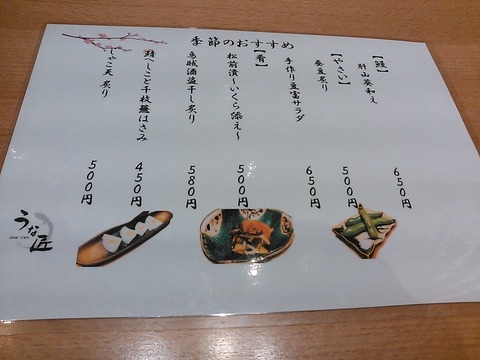 季節のおすすめ
【鰻】
肝山葵和え
650円
【やさい】
蚕豆炙り
500円
手作り豆富サラダ
650円
【肴】
松前漬～いくら添え～
500円
烏賊酒盗干し炙り
580円
鯖へしこと千枚蕪はさみ
450円
じゃこ天 炙り
500円
うな匠